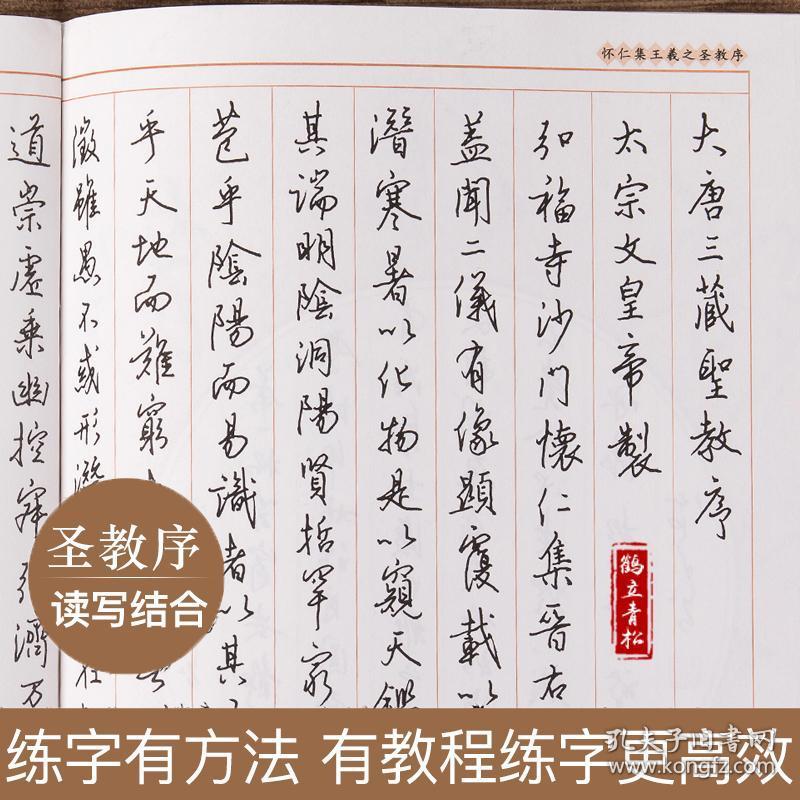 怀仁集王羲之圣教序
大唐三藏聖教序
太宗文皇帝製
弘福寺沙門懷仁集晉右
蓋聞二儀有像顯覆載以
潛寒暑以化物是以窺天鑑
其端明陰洞陽賢哲罕窮
苞乎陰陽而易識者以其
乎天地而難窮
徵雖愚不惑形潛
在
道崇虛乘幽控寂弘濟万
鶴立青松
圣教序
读写结合
练字有方法 有教程练字更高效
孔夫子旧书网
www.kongfz.com